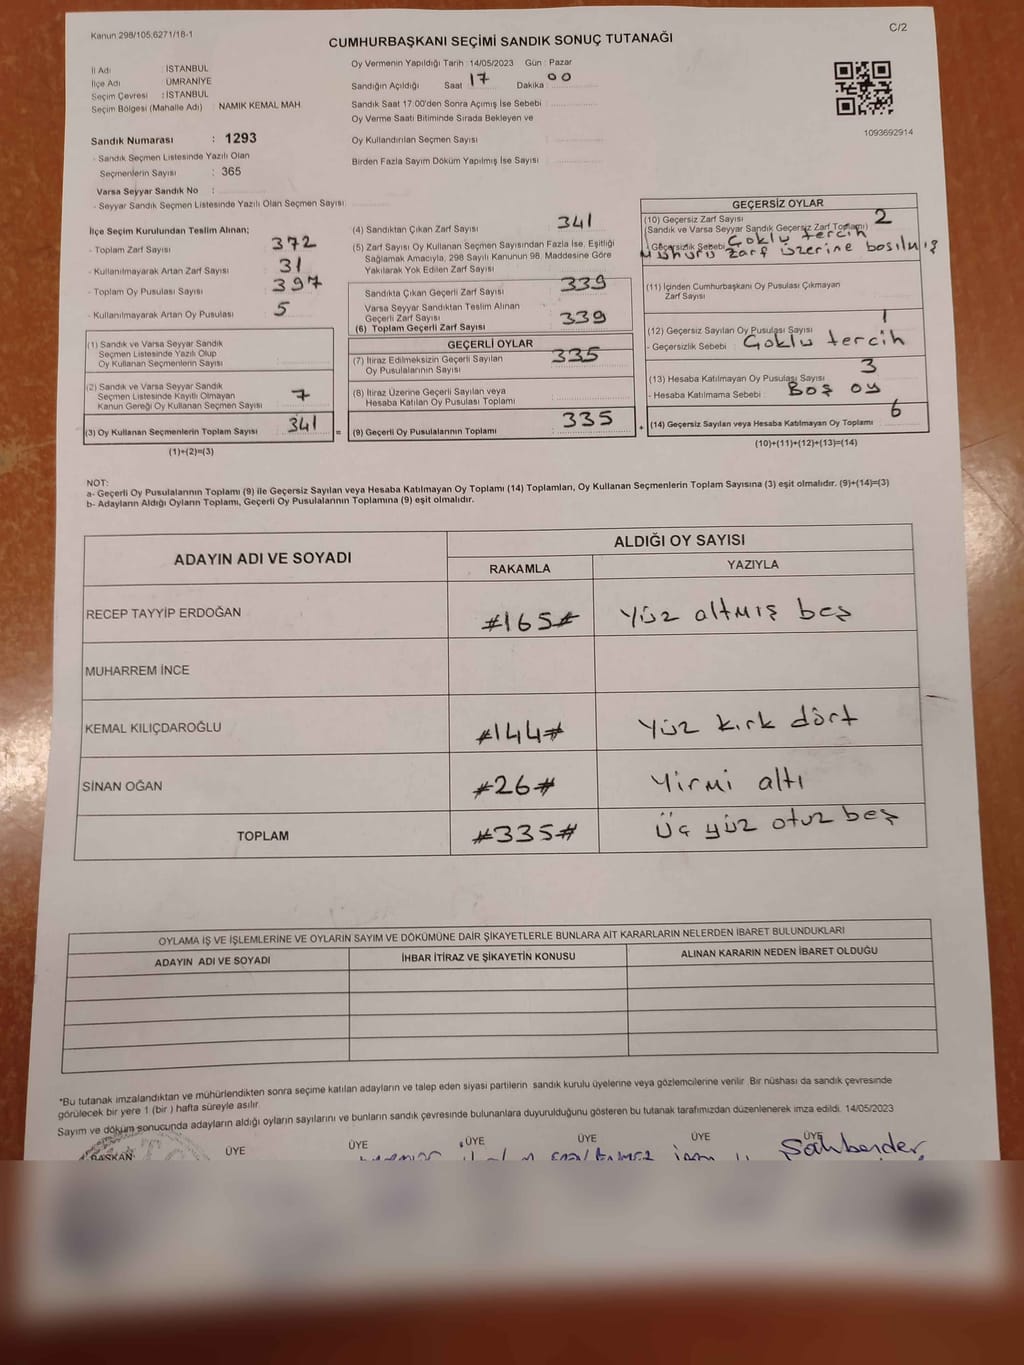 Kanun 298/105,6271/18-1
C/2
CUMHURBAŞKANI SEÇİMİ SANDIK SONUÇ TUTANAĞI
İl Adı : İSTANBUL
İlçe Adı : ÜMRANİYE
Seçim Çevresi : İSTANBUL
Seçim Bölgesi (Mahalle Adı) : NAMIK KEMAL MAH
Sandık Numarası : 1293
- Sandık Seçmen Listesinde Yazılı Olan
Seçmenlerin Sayısı : 365
Varsa Seyyar Sandık No :
- Seyyar Sandık Seçmen Listesinde Yazılı Olan Seçmen Sayısı:
Oy Vermenin Yapıldığı Tarih : 14/05/2023 Gün : Pazar
Sandığın Açıldığı Saat : 17 Dakika : 00
Sandık Saat 17.00'den Sonra Açımış İse Sebebi :
Oy Verme Saati Bitiminde Sırada Bekleyen ve
Oy Kullandırılan Seçmen Sayısı :
Birden Fazla Sayım Döküm Yapılmış İse Sayısı :
1093692914
İlçe Seçim Kurulundan Teslim Alınan;
- Toplam Zarf Sayısı : 372
- Kullanılmayarak Artan Zarf Sayısı : 31
- Toplam Oy Pusulası Sayısı : 397
- Kullanılmayarak Artan Oy Pusulası : 5
(1) Sandık ve Varsa Seyyar Sandık
Seçmen Listesinde Yazılı Olup
Oy Kullanan Seçmenlerin Sayısı :
(2) Sandık ve Varsa Seyyar Sandık
Seçmen Listesinde Kayıtlı Olmayan
Kanun Gereği Oy Kullanan Seçmen Sayısı : 7
(3) Oy Kullanan Seçmenlerin Toplam Sayısı : 341
(1)+(2)=(3)
(4) Sandıktan Çıkan Zarf Sayısı : 341
(5) Zarf Sayısı Oy Kullanan Seçmen Sayısından Fazla İse, Eşitliği
Sağlamak Amacıyla, 298 Sayılı Kanunun 98. Maddesine Göre
Yakılarak Yok Edilen Zarf Sayısı :
Sandıkta Çıkan Geçerli Zarf Sayısı : 339
Varsa Seyyar Sandıktan Teslim Alınan
Geçerli Zarf Sayısı :
(6) Toplam Geçerli Zarf Sayısı : 339
GEÇERLİ OYLAR
(7) İtiraz Edilmeksizin Geçerli Sayılan
Oy Pusulalarının Sayısı : 335
(8) İtiraz Üzerine Geçerli Sayılan veya
Hesaba Katılan Oy Pusulası Toplamı :
= (9) Geçerli Oy Pusulalarının Toplamı : 335
GEÇERSİZ OYLAR
(10) Geçersiz Zarf Sayısı : 2
(Sandık ve Varsa Seyyar Sandık Geçersiz Zarf Toplamı)
- Geçersizlik Sebebi : Çoklu tercih
Mühürü zarf üzerine basılmış
(11) İçinden Cumhurbaşkanı Oy Pusulası Çıkmayan
Zarf Sayısı :
(12) Geçersiz Sayılan Oy Pusulası Sayısı : 1
- Geçersizlik Sebebi : Çoklu tercih
(13) Hesaba Katılmayan Oy Pusulası Sayısı : 3
- Hesaba Katılmama Sebebi : Boş oy
+ (14) Geçersiz Sayılan veya Hesaba Katılmayan Oy Toplamı : 6
(10)+(11)+(12)+(13)=(14)
NOT:
a- Geçerli Oy Pusulalarının Toplamı (9) ile Geçersiz Sayılan veya Hesaba Katılmayan Oy Toplamı (14) Toplamları, Oy Kullanan Seçmenlerin Toplam Sayısına (3) eşit olmalıdır. (9)+(14)=(3)
b- Adayların Aldığı Oyların Toplamı, Geçerli Oy Pusulalarının Toplamına (9) eşit olmalıdır.
ADAYIN ADI VE SOYADI
ALDIĞI OY SAYISI
RAKAMLA YAZIYLA
RECEP TAYYİP ERDOĞAN #165# Yüz altmış beş
MUHARREM İNCE
KEMAL KILIÇDAROĞLU #144# Yüz kırk dört
SİNAN OĞAN #26# Yirmi altı
TOPLAM #335# Üç yüz otuz beş
OYLAMA İŞ VE İŞLEMLERİNE VE OYLARIN SAYIM VE DÖKÜMÜNE DAİR ŞİKAYETLERLE BUNLARA AİT KARARLARIN NELERDEN İBARET BULUNDUKLARI
ADAYIN ADI VE SOYADI İHBAR İTİRAZ VE ŞİKAYETİN KONUSU ALINAN KARARIN NEDEN İBARET OLDUĞU
*Bu tutanak imzalandıktan ve mühürlendikten sonra seçime katılan adayların ve talep eden siyasi partilerin sandık kurulu üyelerine veya gözlemcilerine verilir .Bir nüshası da sandık çevresinde
görülecek bir yere 1 (bir ) hafta süreyle asılır.
Sayım ve döküm sonucunda adayların aldığı oyların sayılarını ve bunların sandık çevresinde bulunanlara duyurulduğunu gösteren bu tutanak tarafımızdan düzenlenerek imza edildi. 14/05/2023
BAŞKAN ÜYE ÜYE ÜYE ÜYE ÜYE ÜYE